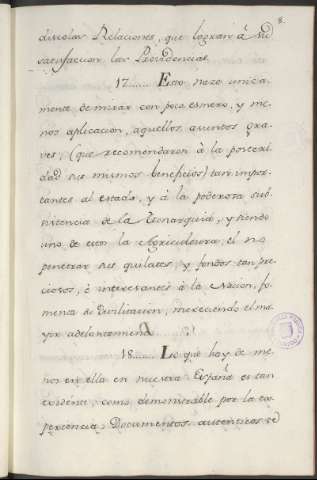 8.
discolas Relaciones, que logran à su
satisfaccion las Providencias.
17...... Esto nace unica-
mente de mirar con poco esmero, y me-
nos aplicacion, aquellos asuntos gra-
ves, (que recomendaron à la posteri-
dad sus mismos beneficios) tan impor-
tantes al estado, y à la poderosa sub-
sistencia de la Monarquia, y siendo
uno de estos la Agricultura, el no
penetrar sus quilates, y fondos tan pre-
ciosos, è interesantes à la Nacion, fo-
menta su Devilitacion, mereciendo el ma-
yor adelantamiento.
18...... Lo que hay de me-
nos en ella en nuestra España es tan
evidente, como demonstrable por la ex-
periencia; Documentos autenticos se